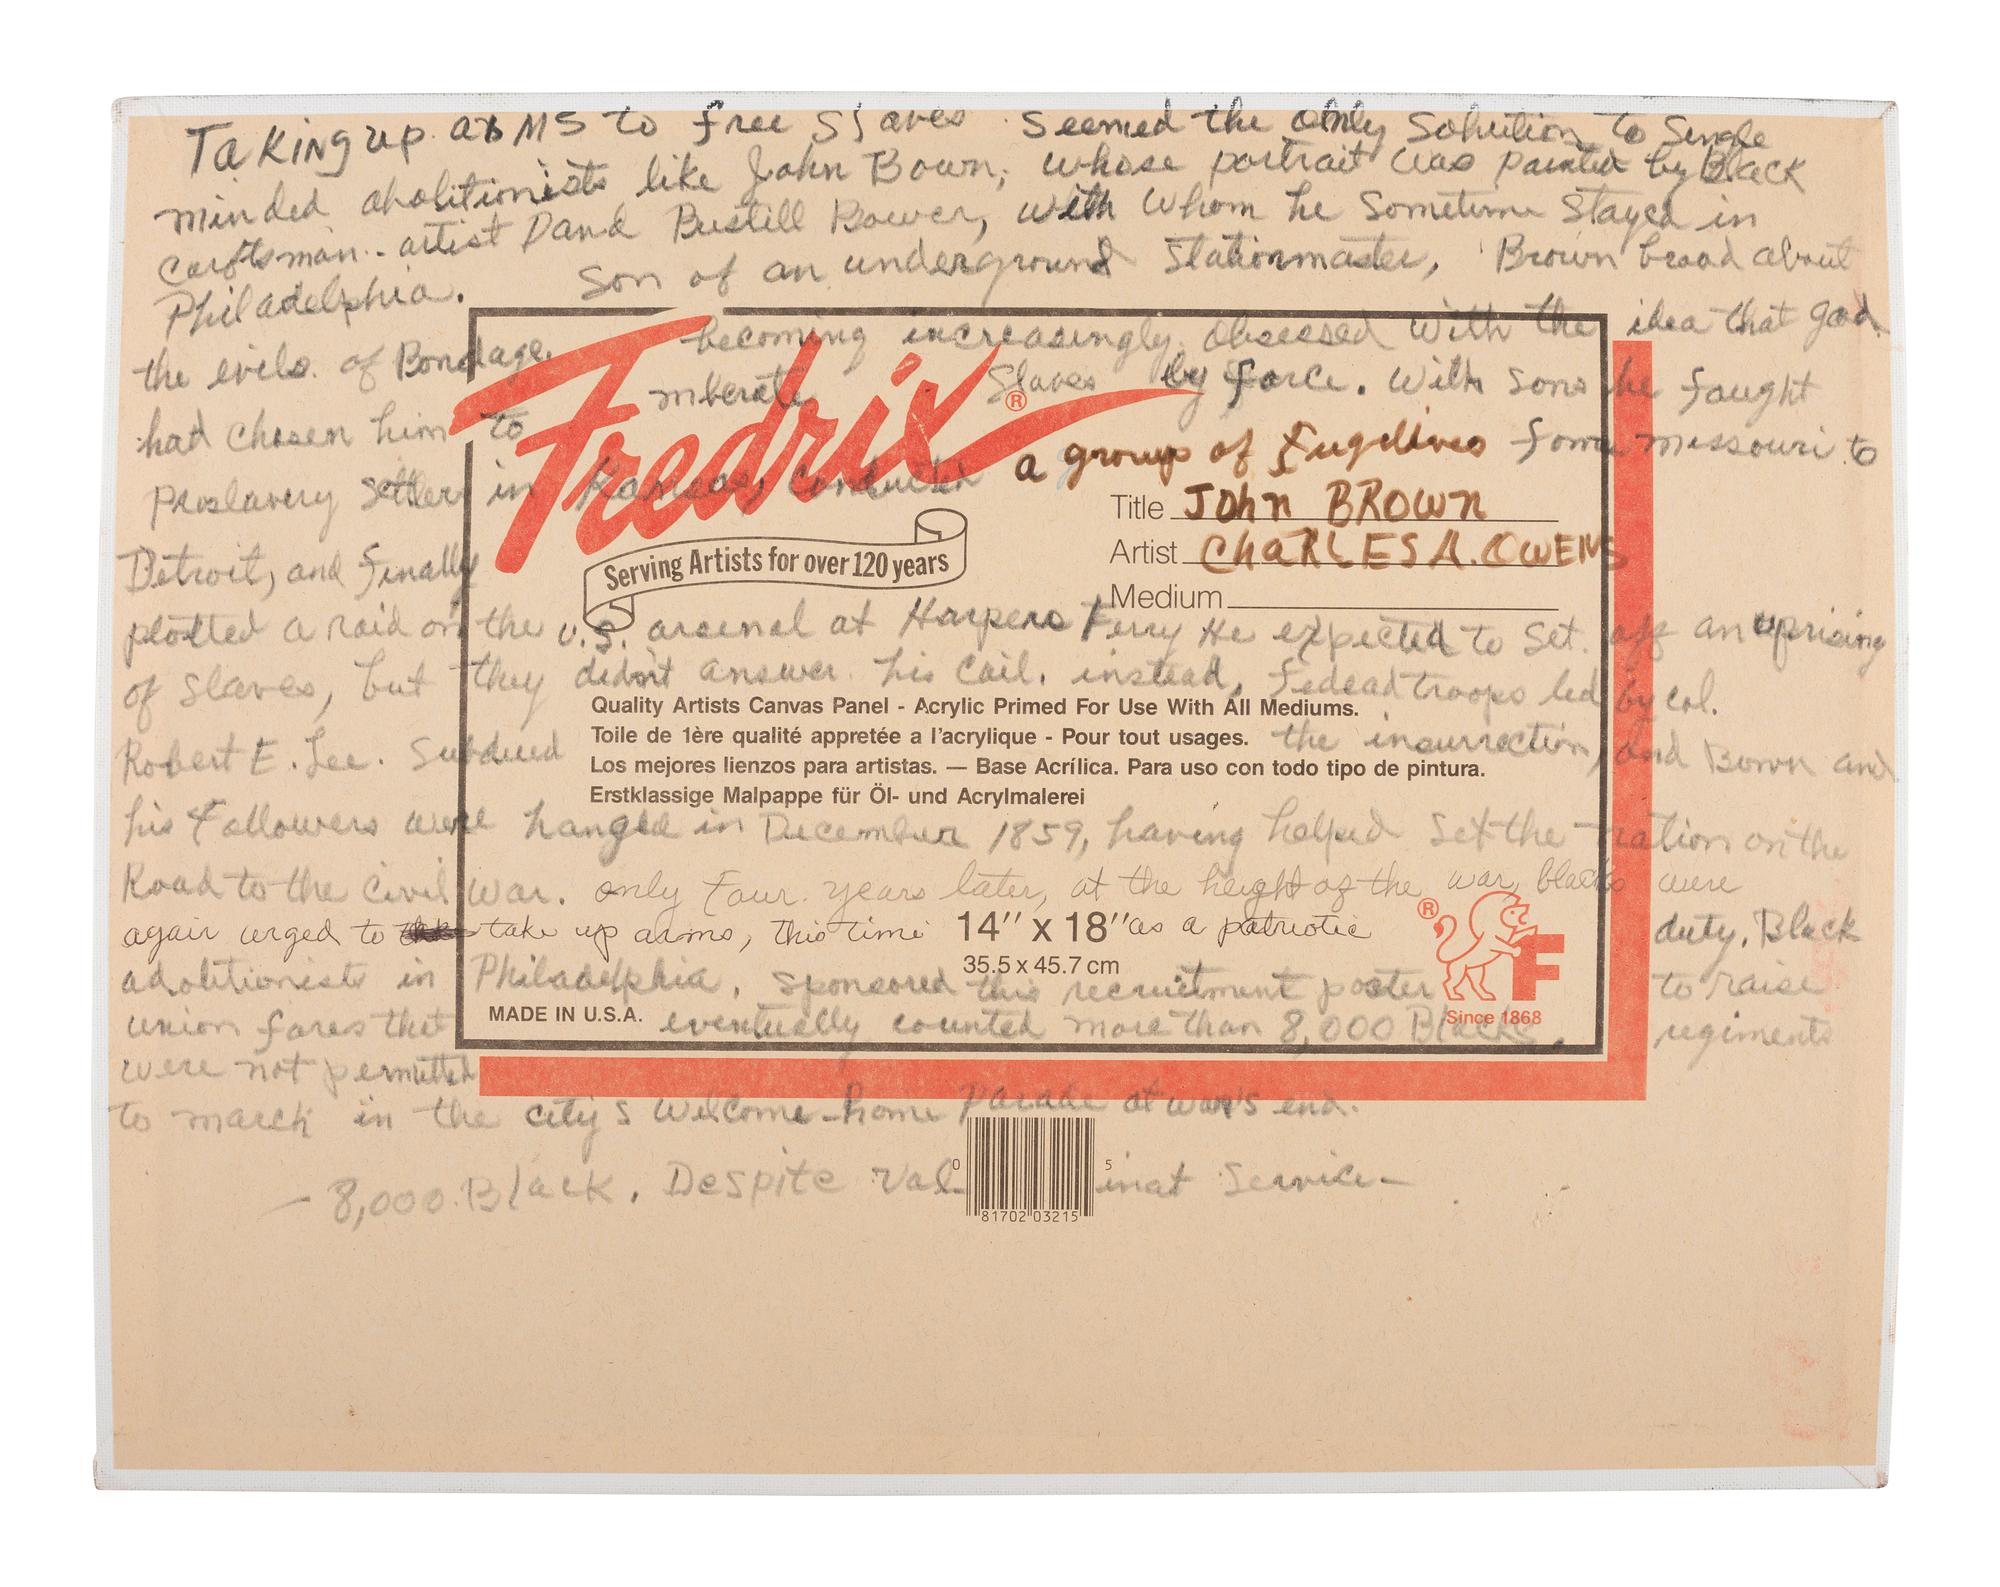 Taking up arMS to free Slaves. Seemed the only Solution to Single
minded abolitionists like John Bown; whose portrait was painted by Black
craftsman.. artist David Bustill Bower, with whom he Sometime Stayed in
Philadelphia. Son of an underground Stationmaster, Brown brood about
the evils. of Bondage. becoming increasingly obsessed with the idea that god
had chosen him to Slaves by force. With sons he fought
Proslavery Settlers in Kansas, conducted a group of Fugelives from Missouri to
Fredrix®
Serving Artists for over 120 years
Title JOhn BROWN
Artist ChaRLES A. OWENS
Medium
Detroit, and finally
plotted a raid on the U.S. arsenal at Harpers Ferry He expected to Set. off an uprising
of Slaves, but they didn't answer his call. instead, Fedead troops led by col.
Quality Artists Canvas Panel - Acrylic Primed For Use With All Mediums.
Toile de 1ère qualité appretée a l'acrylique - Pour tout usages.
Robert E. Lee. Subdued the insurrection, and Bown and
Los mejores lienzos para artistas. — Base Acrílica. Para uso con todo tipo de pintura.
Erstklassige Malpappe für Öl- und Acrylmalerei
his Followers were hanged in December 1859, having helped Set the nation on the
Road to the Civil War. only Four. years later, at the height of the war, blacks were
again urged to take up arms, this time as a patriotic duty. Black
14" x 18"
35.5 x 45.7 cm
abolitionists in Philadelphia, sponsored this recruitment poster to raise
union fores that eventually counted more than 8,000 Blacks. regiments
MADE IN U.S.A.
® F
Since 1868
were not permitted
to march in the city's Welcome-home Parade at war's end.
— 8,000 Black. Despite Val inat Service-
0 81702 03215 5